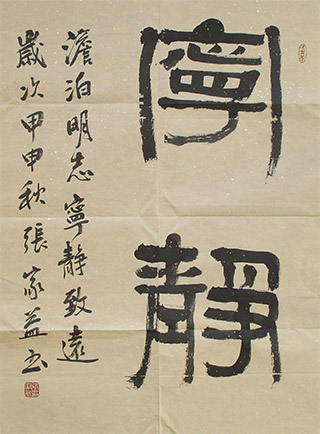 寧靜
澹泊明志寧靜致遠
歲次甲申秋張家益書